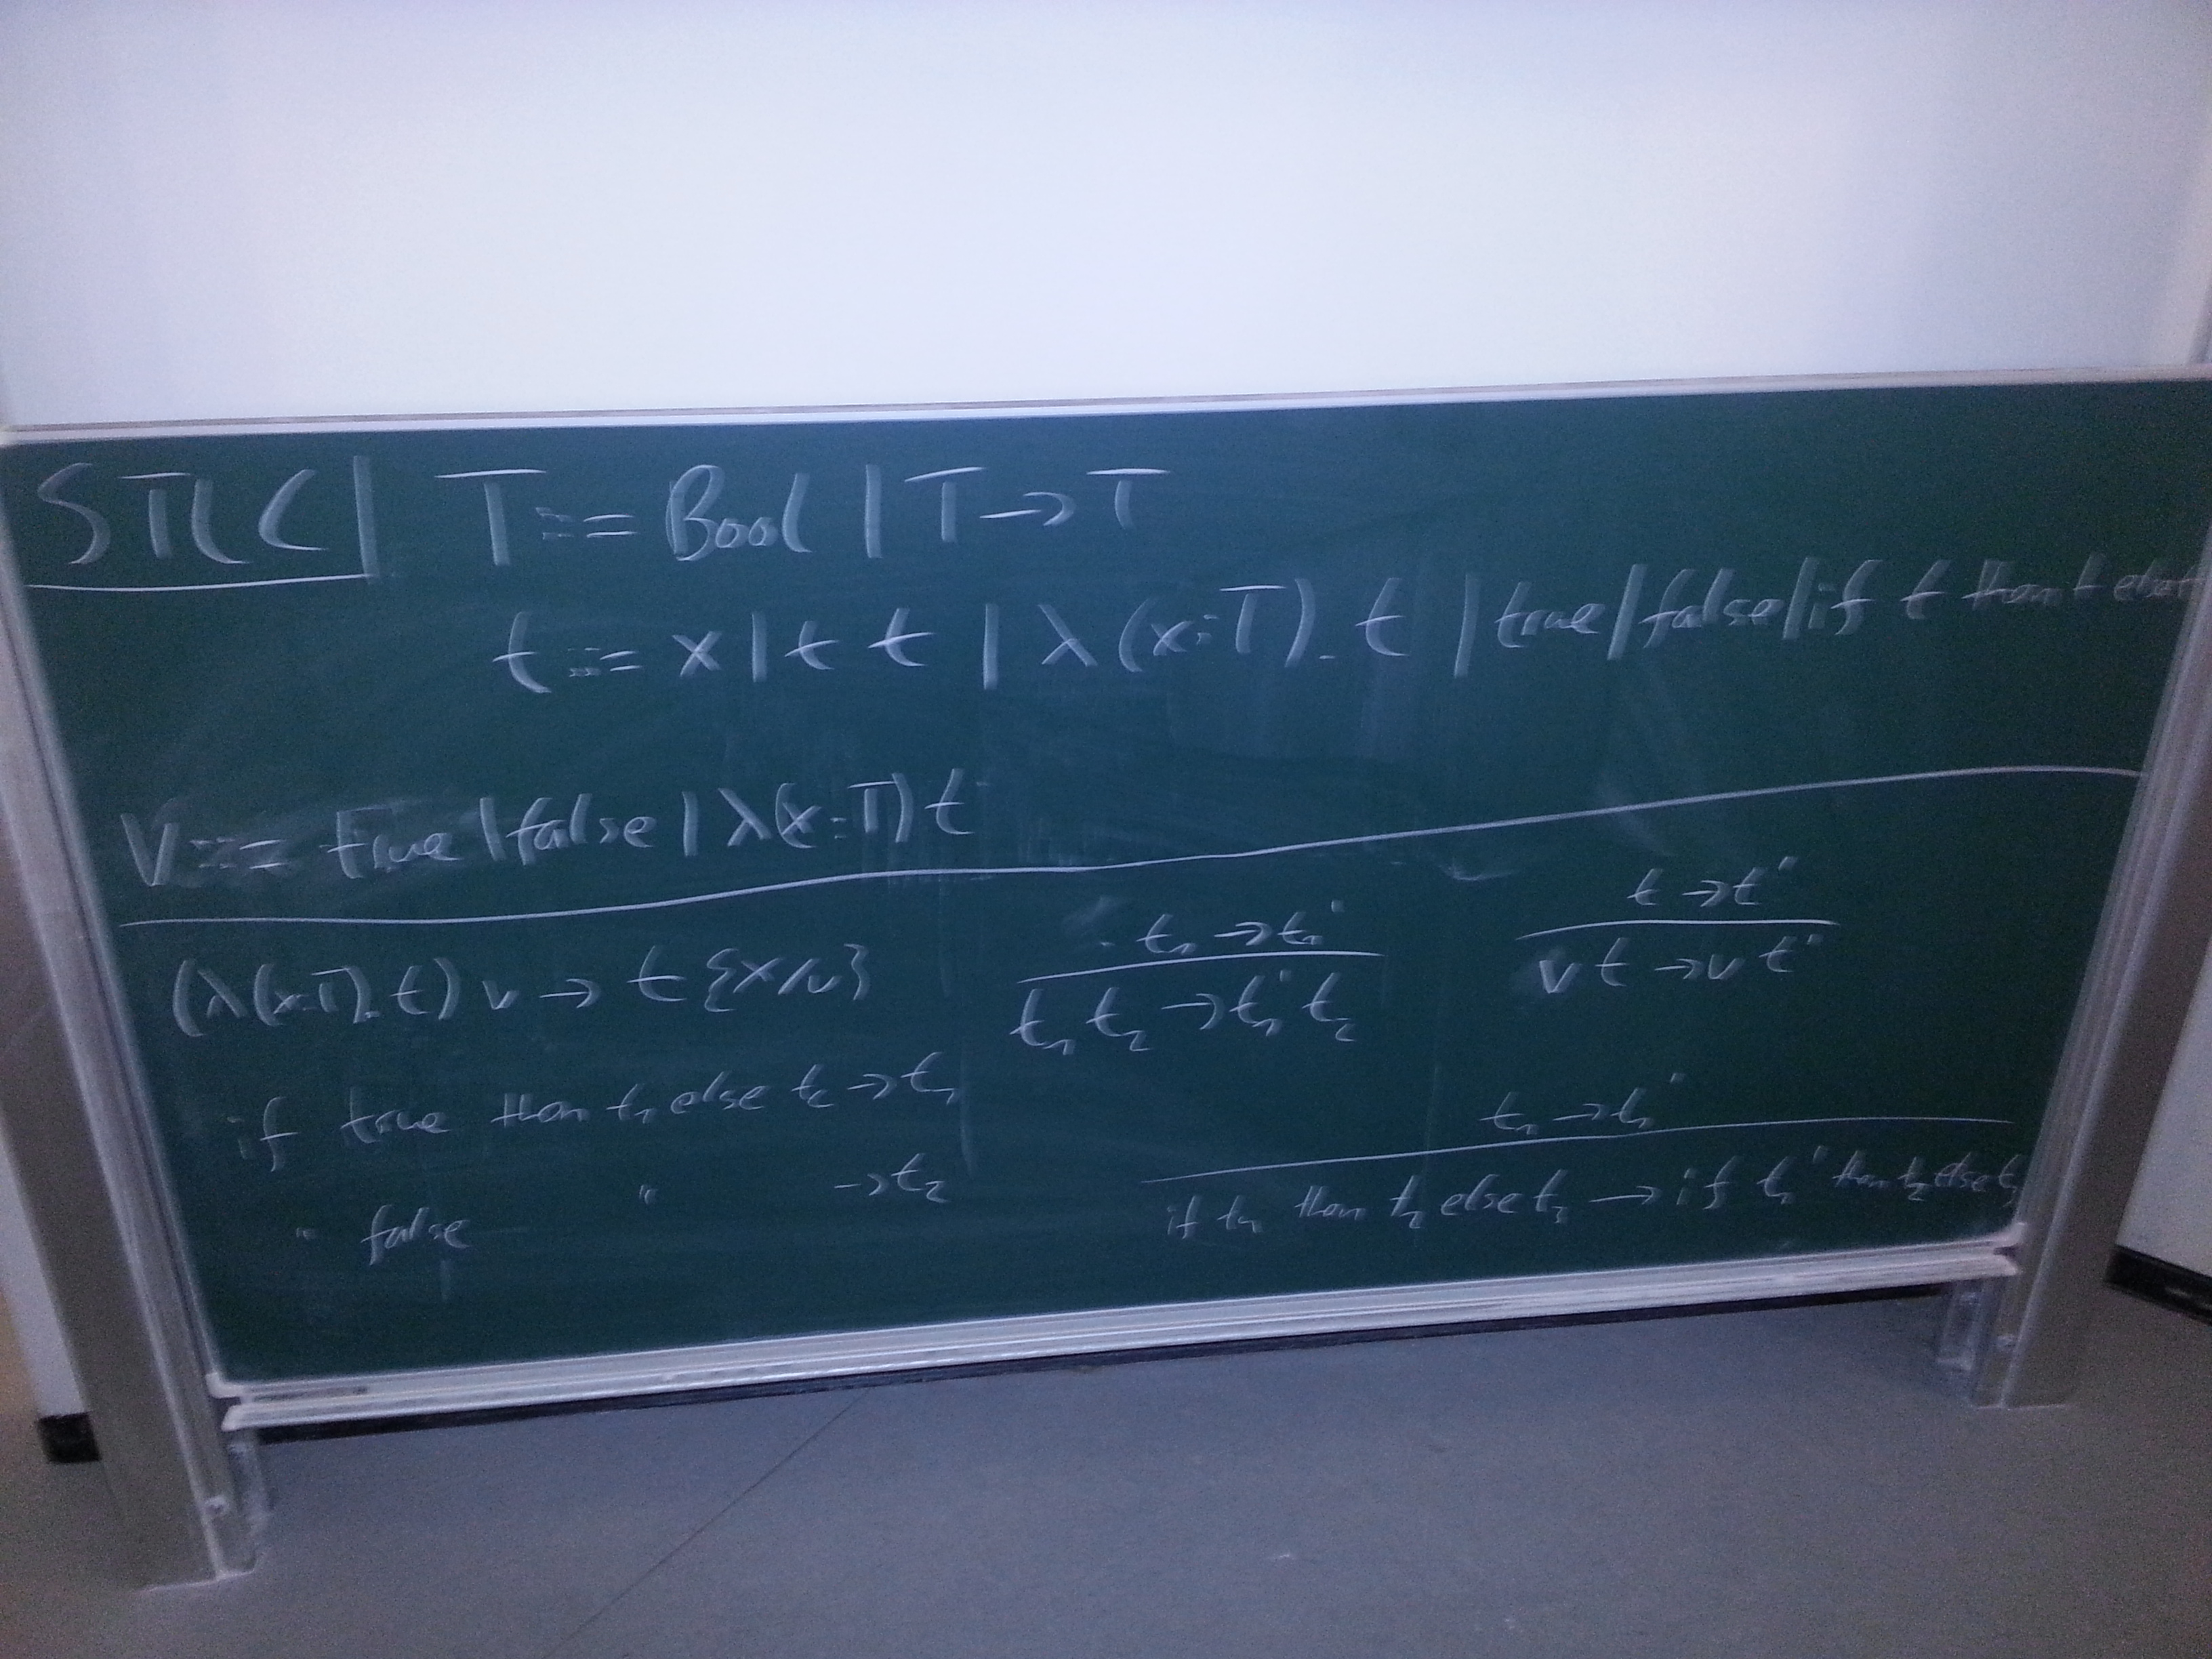 STLC | T ::= Bool | T → T
t ::= x | t t | λ(x:T). t | true | false | if t then t else t
V ::= true | false | λ(x:T) t
(λ(x:T).t) v → t {x/v}
t₁ → t₁'
t₁ t₂ → t₁' t₂
t → t'
v t → v t'
if true then t₁ else t₂ → t₁
" false " → t₂
t₁ → t₁'
if t₁ then t₂ else t₃ → if t₁' then t₂ else t₃